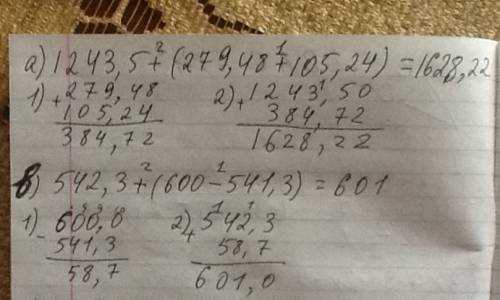 а) 1243,5+(279,48+105,24) = 1628,22
1) + 279,48
105,24
384,72
2) + 1243,50
384,72
1628,22
в) 542,3+(600-541,3) = 601
1) - 600,0
541,3
58,7
2) + 542,3
58,7
601,0